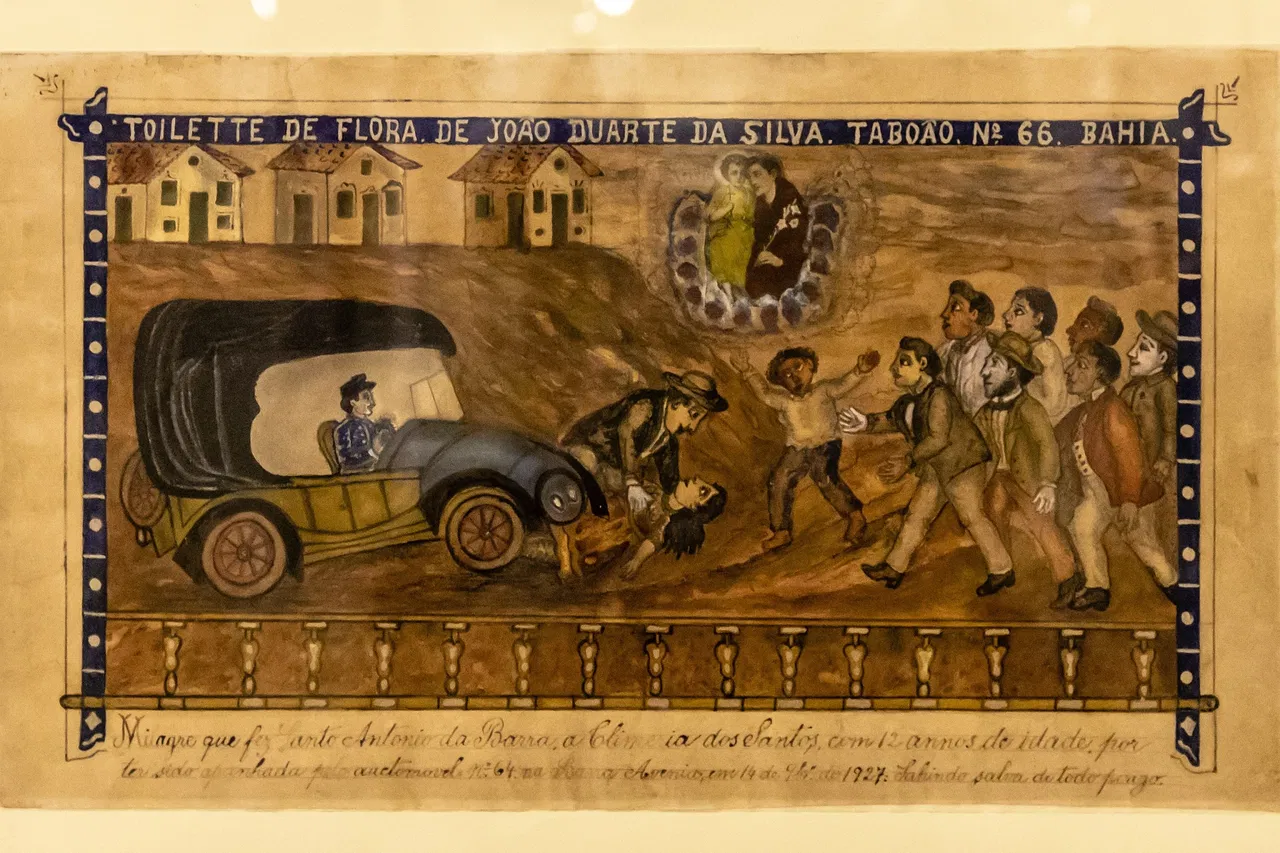 TOILETTE DE FLORA. DE JOÃO DUARTE DA SILVA. TABOÃO. Nº 66. BAHIA.
Milagre que fez Santo Antonio da Barra, a dos Santos, com 12 annos de idade, por
ter sido apanhada pelo auctomovel. Nº 64 na Barra Avenida, em 14 de de 1927. Sahindo salva de todo